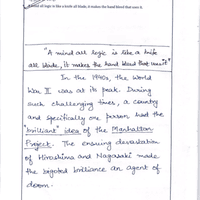 A mind all logic is like a knife all blade, it makes the hand bleed that uses it.
"A mind all logic is like a knife
all blade, it makes the hand bleed that uses it"
In the 1940s, the World
War II was at its peak. During
such challenging times, a country
and specifically one person had the
"brilliant" idea of the Manhattan
Project. The ensuing devastation
of Hiroshima and Nagasaki made
the bigoted brilliance an agent of
doom.